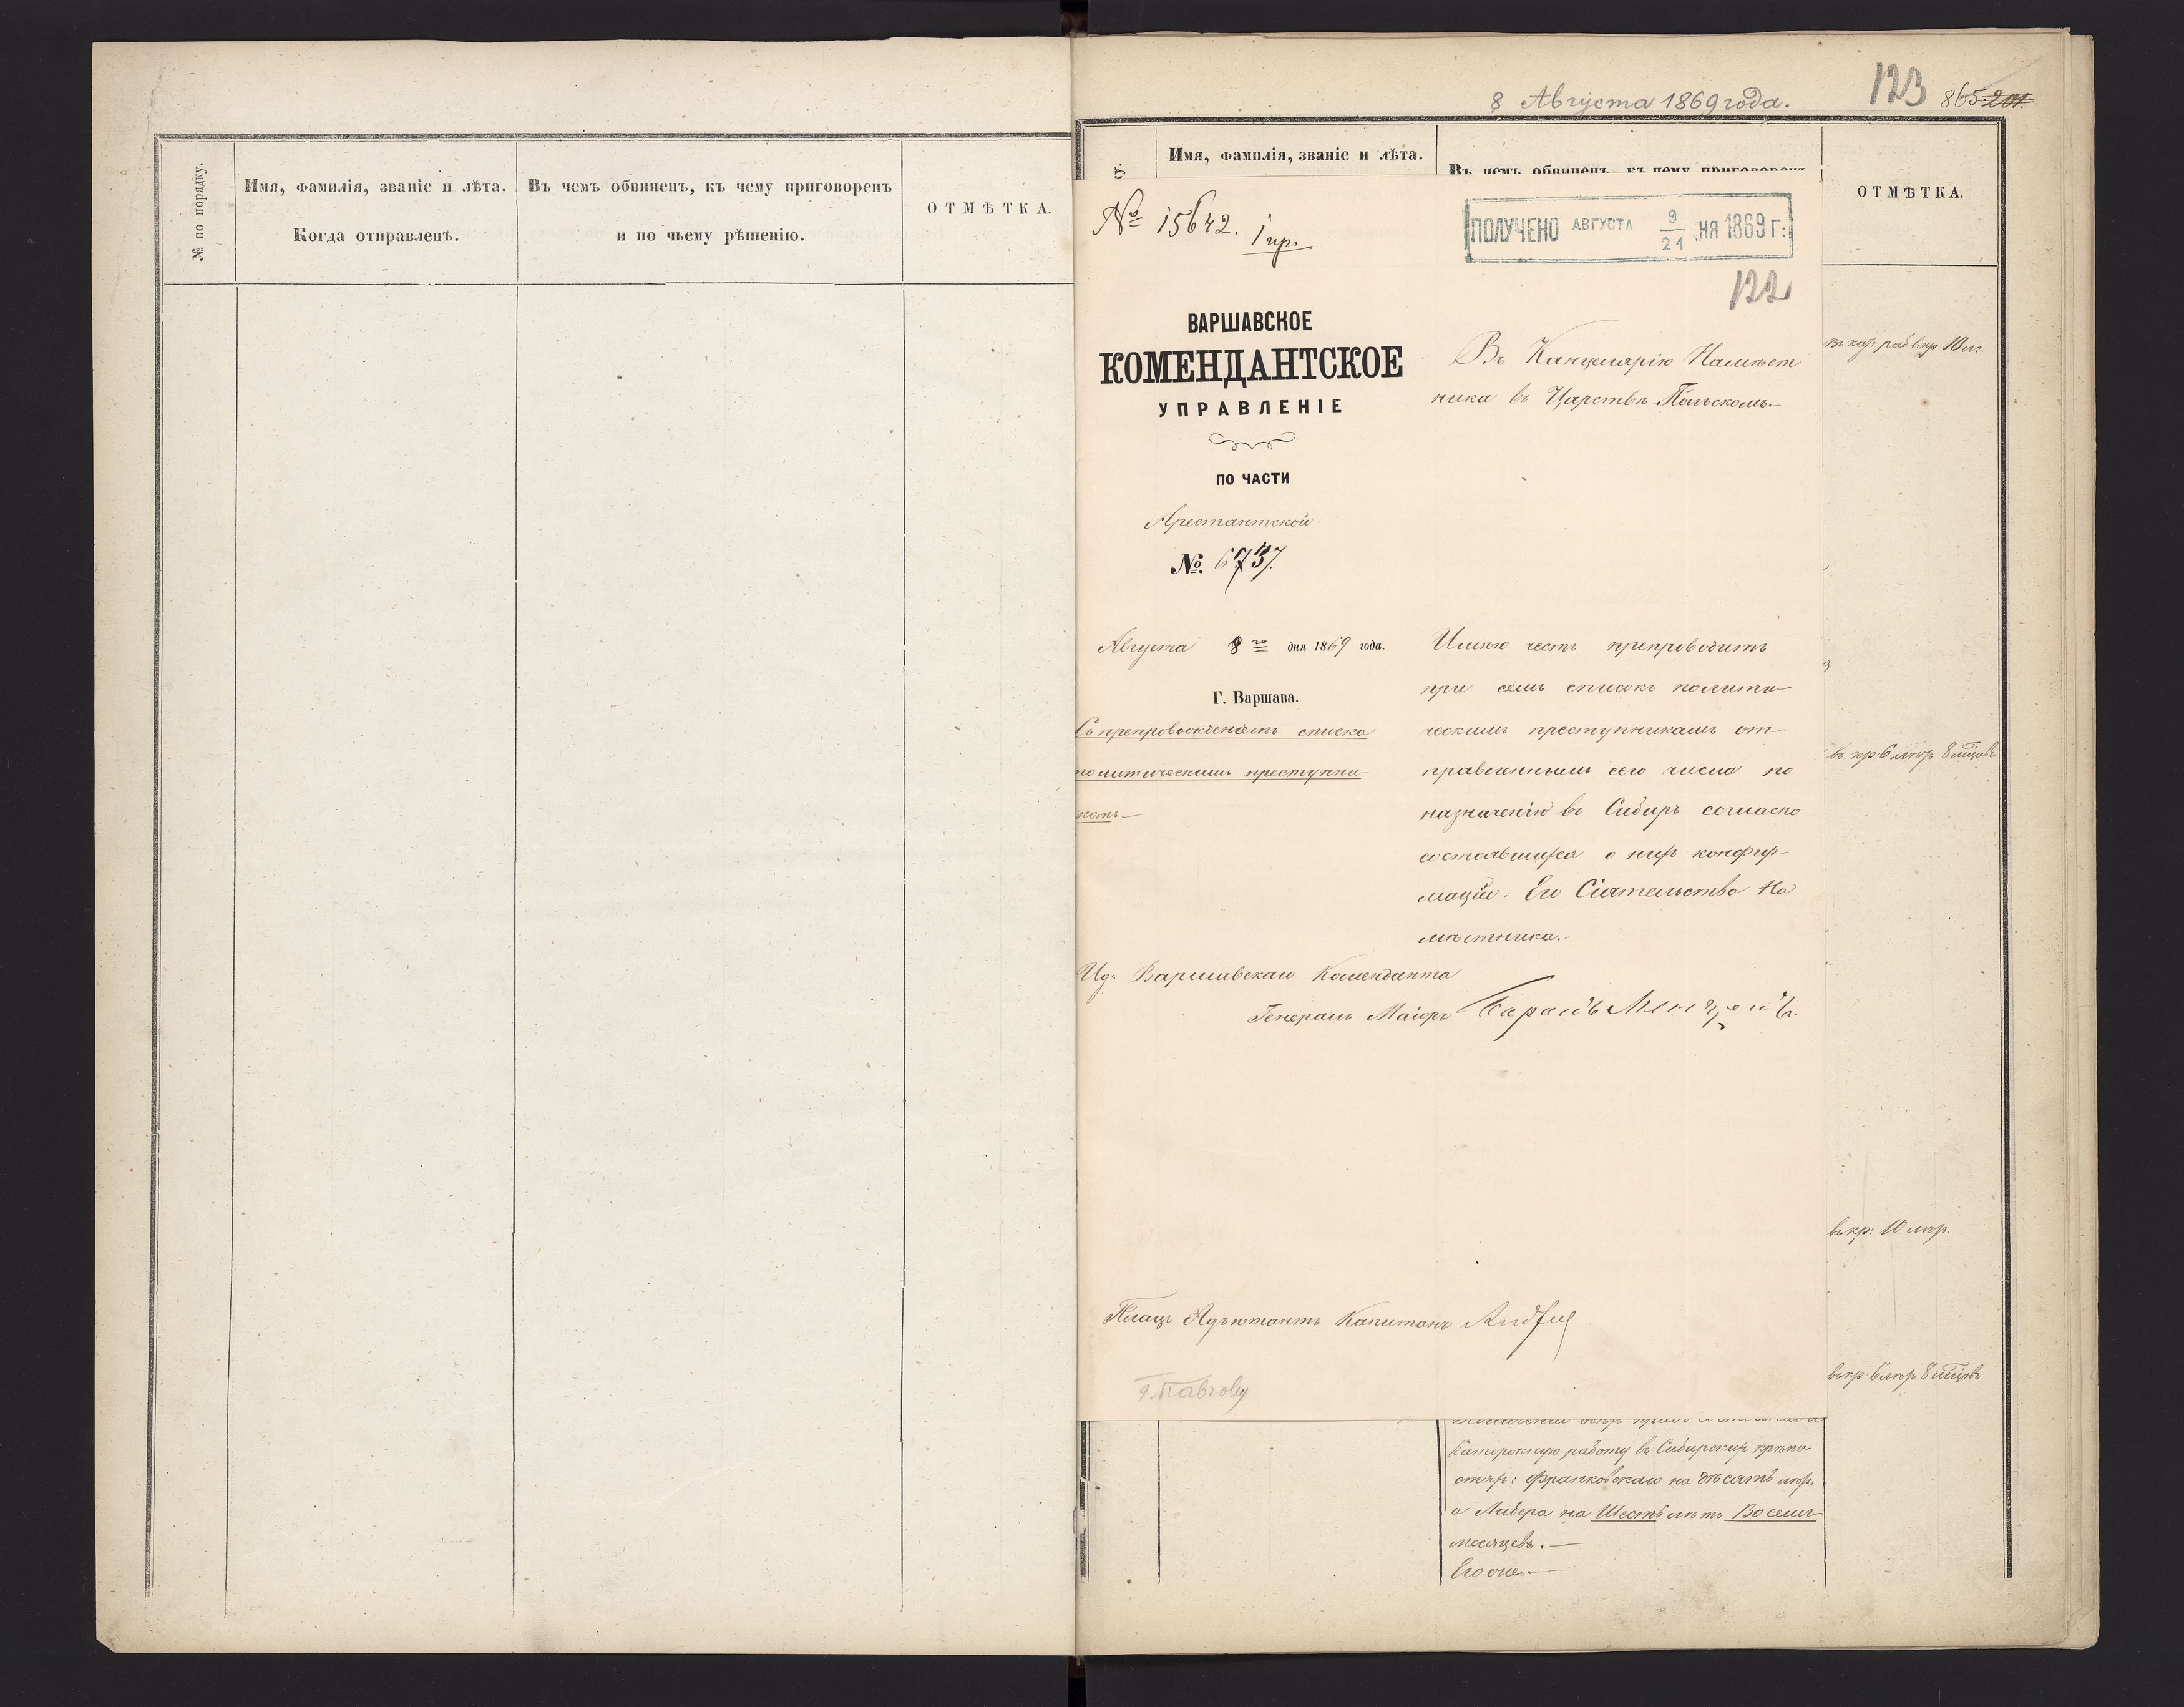 № по порядку.
Имя, фамилія, званіе и лѣта.
Когда отправленъ.
Въ чемъ обвиненъ, къ чему приговоренъ
и по чьему рѣшенію.
ОТМѢТКА.
8 Августа 1869 года.
123
865 201.
Имя, фамилія, званіе и лѣта.
Въ чемъ обвиненъ, къ чему приговоренъ
ОТМѢТКА.
№ 15642. 1 пр.
ПОЛУЧЕНО АВГУСТА 9/21 ДНЯ 1869 Г:
122
ВАРШАВСКОЕ
КОМЕНДАНТСКОЕ
УПРАВЛЕНІЕ
ПО ЧАСТИ
Арестантской
№. 6737.
Августа 8го дня 1869 года.
Г. Варшава.
Съ препровожденіемъ списка
политическимъ преступни-
камъ.—
Въ Канцелярію Намѣст
ника въ Царствѣ Польскомъ.—
Имѣю честь препроводить
при семъ списокъ полити-
ческимъ преступникамъ от-
правленнымъ сего числа по
назначенію въ Сибирь согласно
состоявшихся о нихъ конфир-
мацій. Его Сіятельства На
мѣстника.—
Ид: Варшавскаго Коменданта
Генералъ Маіоръ Баронъ Менгденъ.
Плацъ Адъютантъ Капитанъ
Г. Павлову
въ кр 6 лѣтъ 8 мѣсцовъ
въ кр: 10 лѣтъ.
въ кр 6 лѣтъ 8 мѣсцовъ
Каторжную работу въ Сибирскихъ крѣпо-
стяхъ: Франковскаго на десять лѣтъ,
а Либера на Шесть лѣтъ Восемь
месяцевъ.—
Его сие.—